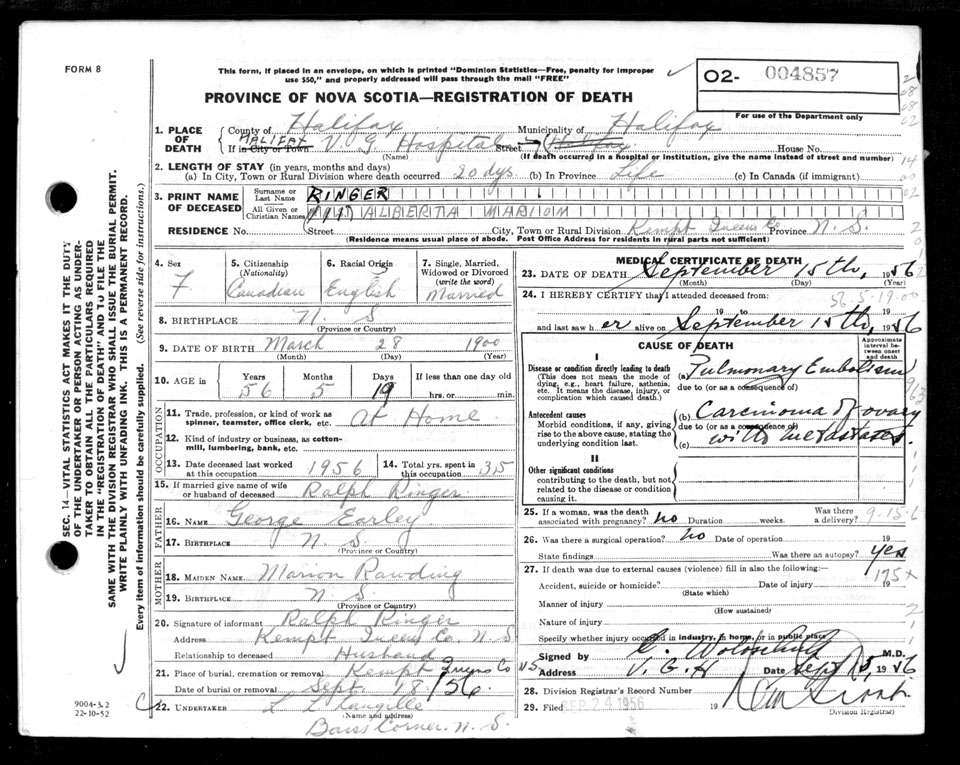 FORM 8
This form, if placed in an envelope, on which is printed "Dominion Statistics—Free, penalty for improper
use $50," and properly addressed will pass through the mail "FREE"
O2- 004857
For use of the Department only
PROVINCE OF NOVA SCOTIA—REGISTRATION OF DEATH
1. PLACE OF DEATH
County of Halifax
Municipality of Halifax
HALIFAX
If in City or Town V. G Hospital Street (Halifax House No.
(Name) (If death occurred in a hospital or institution, give the name instead of street and number)
2. LENGTH OF STAY (in years, months and days)
(a) In City, Town or Rural Division where death occurred 20 dys. (b) In Province Life (c) In Canada (if immigrant)
3. PRINT NAME OF DECEASED
Surname or Last Name RINGER
All Given or Christian Names ALBERTA MARION
RESIDENCE No. (Street City, Town or Rural Division Kempt Queens Co Province N. S.
(Residence means usual place of abode. Post Office Address for residents in rural parts not sufficient)
4. Sex F
5. Citizenship (Nationality) Canadian
6. Racial Origin English
7. Single, Married, Widowed or Divorced (write the word) Married
8. BIRTHPLACE N. S
(Province or Country)
9. DATE OF BIRTH March 28 1900
(Month) (Day) (Year)
10. AGE in Years 56 Months 5 Days 19 If less than one day old hrs. or min.
OCCUPATION
11. Trade, profession, or kind of work as spinner, teamster, office clerk, etc. At Home
12. Kind of industry or business, as cotton-mill, lumbering, bank, etc.
13. Date deceased last worked at this occupation 1956
14. Total yrs. spent in this occupation 35
15. If married give name of wife or husband of deceased Ralph Ringer
FATHER
16. NAME George Earley
17. BIRTHPLACE N. S
(Province or Country)
MOTHER
18. MAIDEN NAME Marion Rawding
19. BIRTHPLACE N S
(Province or Country)
20. Signature of informant Ralph Ringer
Address Kempt Queens Co. N. S
Relationship to deceased Husband
21. Place of burial, cremation or removal Kempt Queens Co N S
Date of burial or removal Sept. 18/56
22. UNDERTAKER L L Langille
(Name and address)
Barss Corner, N. S.
MEDICAL CERTIFICATE OF DEATH
23. DATE OF DEATH September 15th, 1956
(Month) (Day) (Year)
24. I HEREBY CERTIFY that I attended deceased from:
19 to 19
and last saw h er alive on September 15th, 1956
CAUSE OF DEATH
Approximate interval between onset and death
I
Disease or condition directly leading to death
(This does not mean the mode of dying, e.g., heart failure, asthenia, etc. It means the disease, injury, or complication which caused death.)
(a) Pulmonary Embolism
due to (or as a consequence of)
Antecedent causes
Morbid conditions, if any, giving rise to the above cause, stating the underlying condition last.
(b) Carcinoma of ovary
due to (or as a consequence of)
(c) with metastases.
II
Other significant conditions
contributing to the death, but not related to the disease or condition causing it.
25. If a woman, was the death associated with pregnancy? no Duration weeks. Was there a delivery?
26. Was there a surgical operation? no Date of operation 19
State findings Was there an autopsy? yes
27. If death was due to external causes (violence) fill in also the following:—
Accident, suicide or homicide? Date of injury 19
(State which)
Manner of injury
(How sustained)
Nature of injury
Specify whether injury occurred in industry, in home, or in public place
Signed by M.D.
Address V. G. H Date Sept 15, 1956
28. Division Registrar's Record Number
29. Filed SEP 24 1956 19
Division Registrar)
9004-3.2
22-10-52
SEC. 14—VITAL STATISTICS ACT MAKES IT THE DUTY
OF THE UNDERTAKER OR PERSON ACTING AS UNDER-
TAKER TO OBTAIN ALL THE PARTICULARS REQUIRED
IN THE "REGISTRATION OF DEATH" AND TO FILE THE
SAME WITH THE DIVISION REGISTRAR WHO SHALL ISSUE THE BURIAL PERMIT.
WRITE PLAINLY WITH UNFADING INK. THIS IS A PERMANENT RECORD.
Every item of information should be carefully supplied. (See reverse side for instructions.)